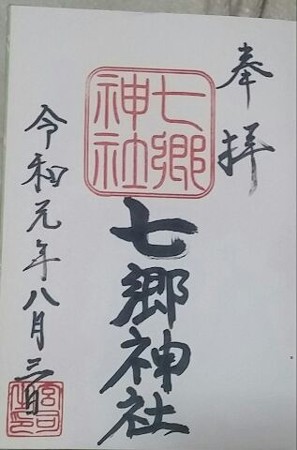 奉拝
七郷
神社
七郷神社
令和元年八月三日